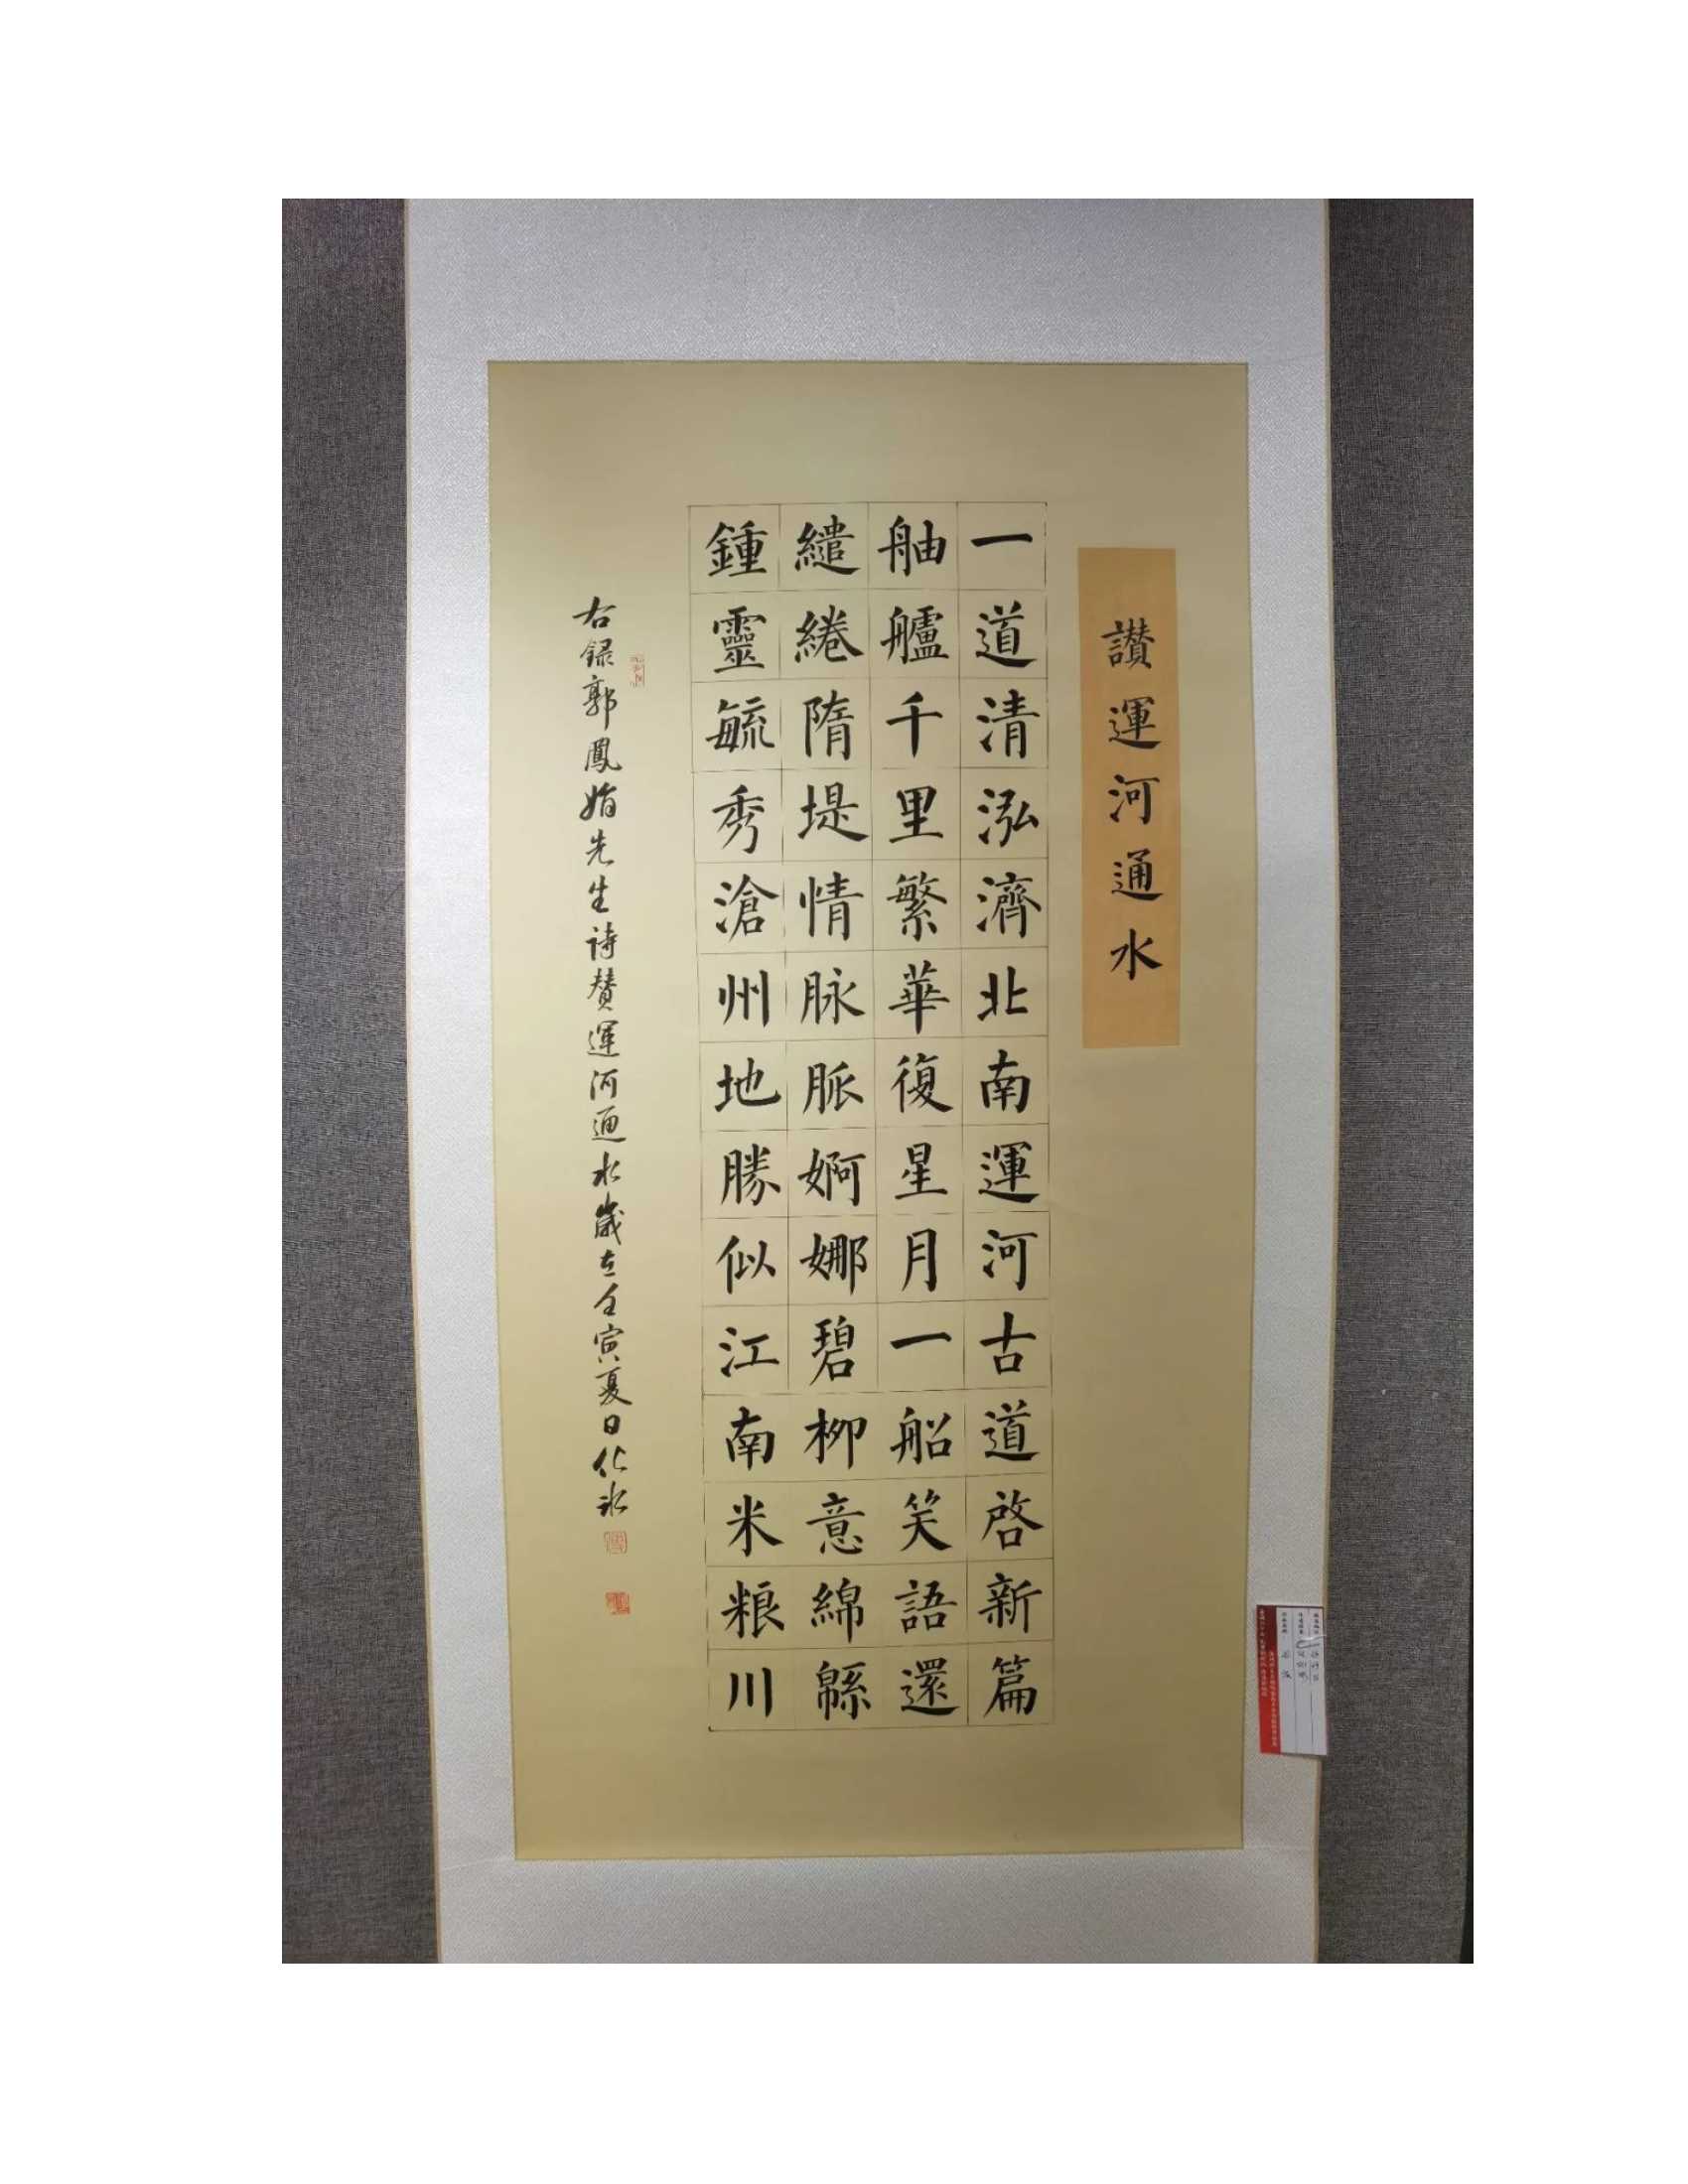 讚運河通水
一道清泓濟北南運河古道啓新篇
舳艫千里繁華復星月一船笑語還
繾綣隋堤情脉脈婀娜碧柳意綿緜
鍾靈毓秀滄州地勝似江南米粮川
右録郭鳳婧先生詩贊運河通水歲在壬寅夏日化冰